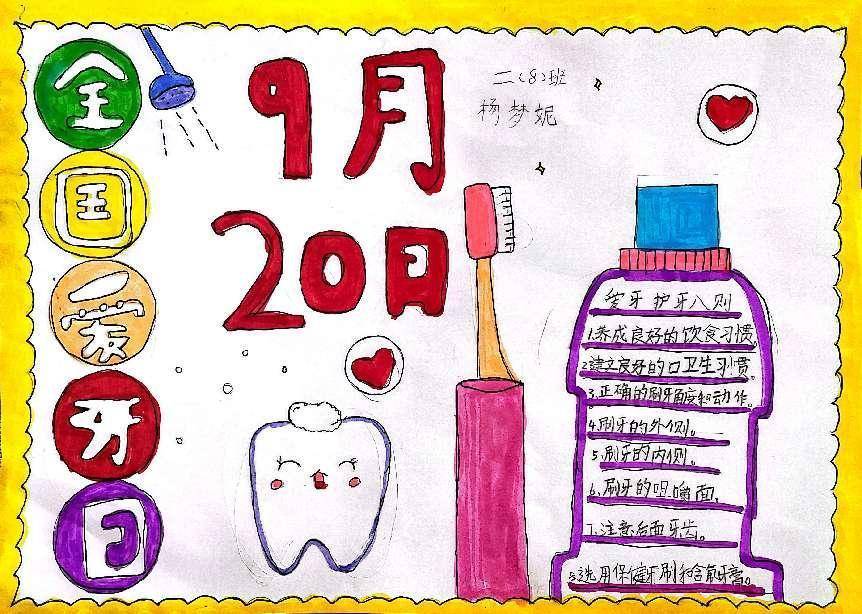 全国爱牙日
9月
20日
二(8)班
杨梦妮
爱牙护牙八则
1.养成良好的饮食习惯
2.建立良好的口卫生习惯。
3.正确的刷牙角度和动作。
4.刷牙的外侧。
5.刷牙的内侧。
6.刷牙的咀嚼面。
7.注意后面牙齿。
8.选用保健牙刷和含氟牙膏。